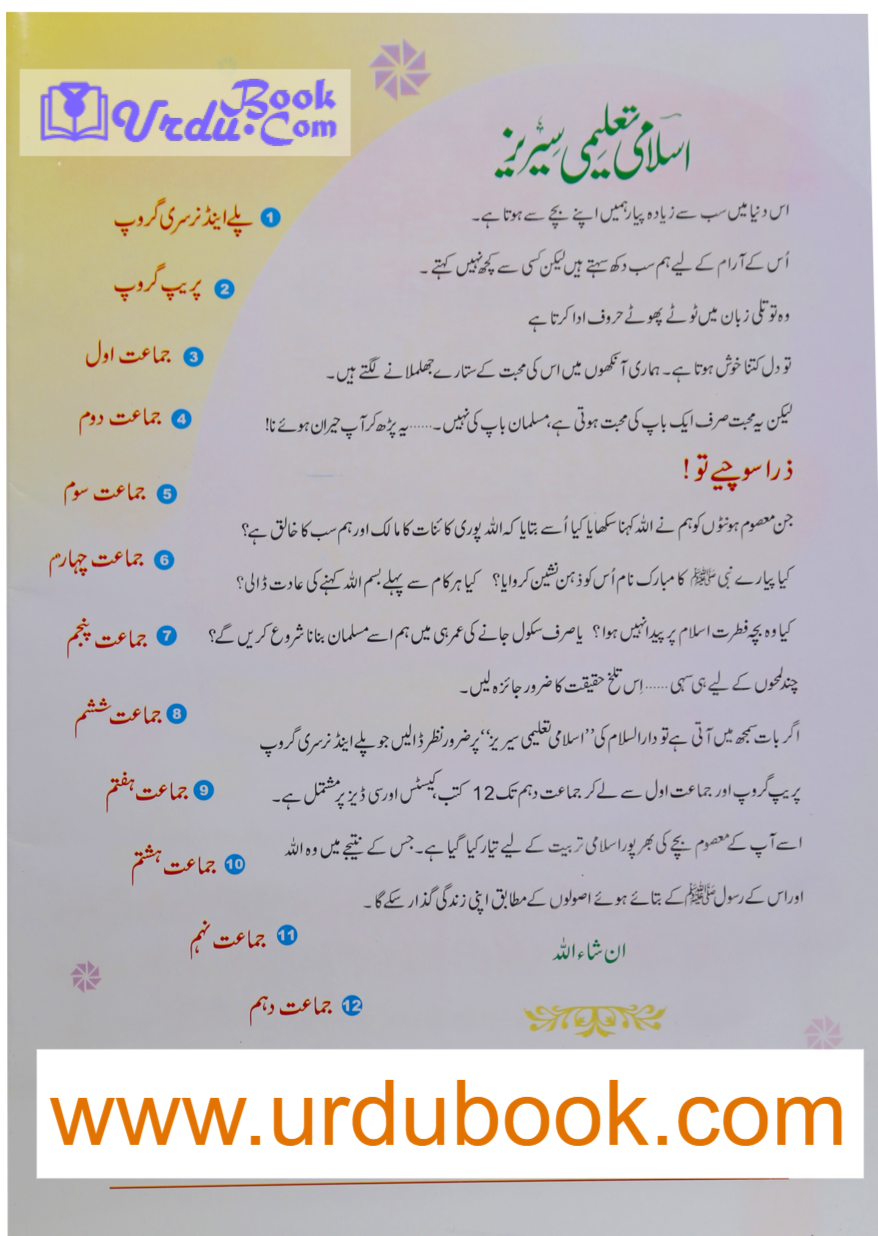 Urdu Book.Com
اسلامی تعلیمی سیریز
اس دنیا میں سب سے زیادہ پیار ہمیں اپنے بچے سے ہوتا ہے۔
اُس کے آرام کے لیے ہم سب دکھ سہتے ہیں لیکن کسی سے کچھ نہیں کہتے ۔
وہ تو تلی زبان میں ٹوٹے پھوٹے حروف ادا کرتا ہے
تو دل کتنا خوش ہوتا ہے۔ ہماری آنکھوں میں اس کی محبت کے ستارے جھلملانے لگتے ہیں۔
لیکن یہ محبت صرف ایک باپ کی محبت ہوتی ہے، مسلمان باپ کی نہیں۔......یہ پڑھ کر آپ حیران ہوئے نا!
ذرا سوچیے تو !
جن معصوم ہونٹوں کو ہم نے اللہ کہنا سکھایا کیا اُسے بتایا کہ اللہ پوری کائنات کا مالک اور ہم سب کا خالق ہے؟
کیا پیارے نبی ﷺ کا مبارک نام اُس کو ذہن نشین کروایا؟ کیا ہر کام سے پہلے بسم اللہ کہنے کی عادت ڈالی؟
کیا وہ بچہ فطرت اسلام پر پیدا نہیں ہوا؟ یا صرف سکول جانے کی عمر ہی میں ہم اسے مسلمان بنانا شروع کریں گے؟
چند لمحوں کے لیے ہی سہی ...... اِس تلخ حقیقت کا ضرور جائزہ لیں۔
اگر بات سمجھ میں آتی ہے تو دارالسلام کی ’’اسلامی تعلیمی سیریز‘‘ پر ضرور نظر ڈالیں جو پلے اینڈ نرسری گروپ
پریپ گروپ اور جماعت اول سے لے کر جماعت دہم تک 12 کتب، کیسٹس اور سی ڈیز پر مشتمل ہے۔
اسے آپ کے معصوم بچے کی بھر پور اسلامی تربیت کے لیے تیار کیا گیا ہے۔ جس کے نتیجے میں وہ اللہ
اور اس کے رسول ﷺ کے بتائے ہوئے اصولوں کے مطابق اپنی زندگی گذار سکے گا ۔
ان شاء اللہ
1 پلے اینڈ نرسری گروپ
2 پریپ گروپ
3 جماعت اول
4 جماعت دوم
5 جماعت سوم
6 جماعت چہارم
7 جماعت پنجم
8 جماعت ششم
9 جماعت ہفتم
10 جماعت ہشتم
11 جماعت نہم
12 جماعت دہم
www.urdubook.com